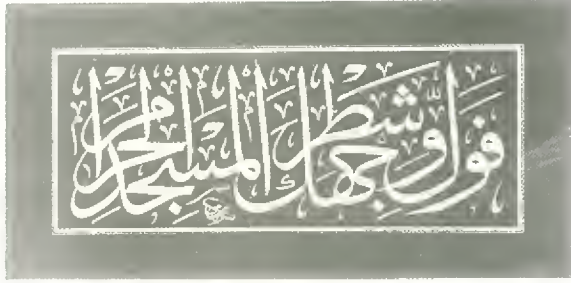 فَوَلِّ وَجْهَكَ شَطْرَ الْمَسْجِدِ الْحَرَامِ